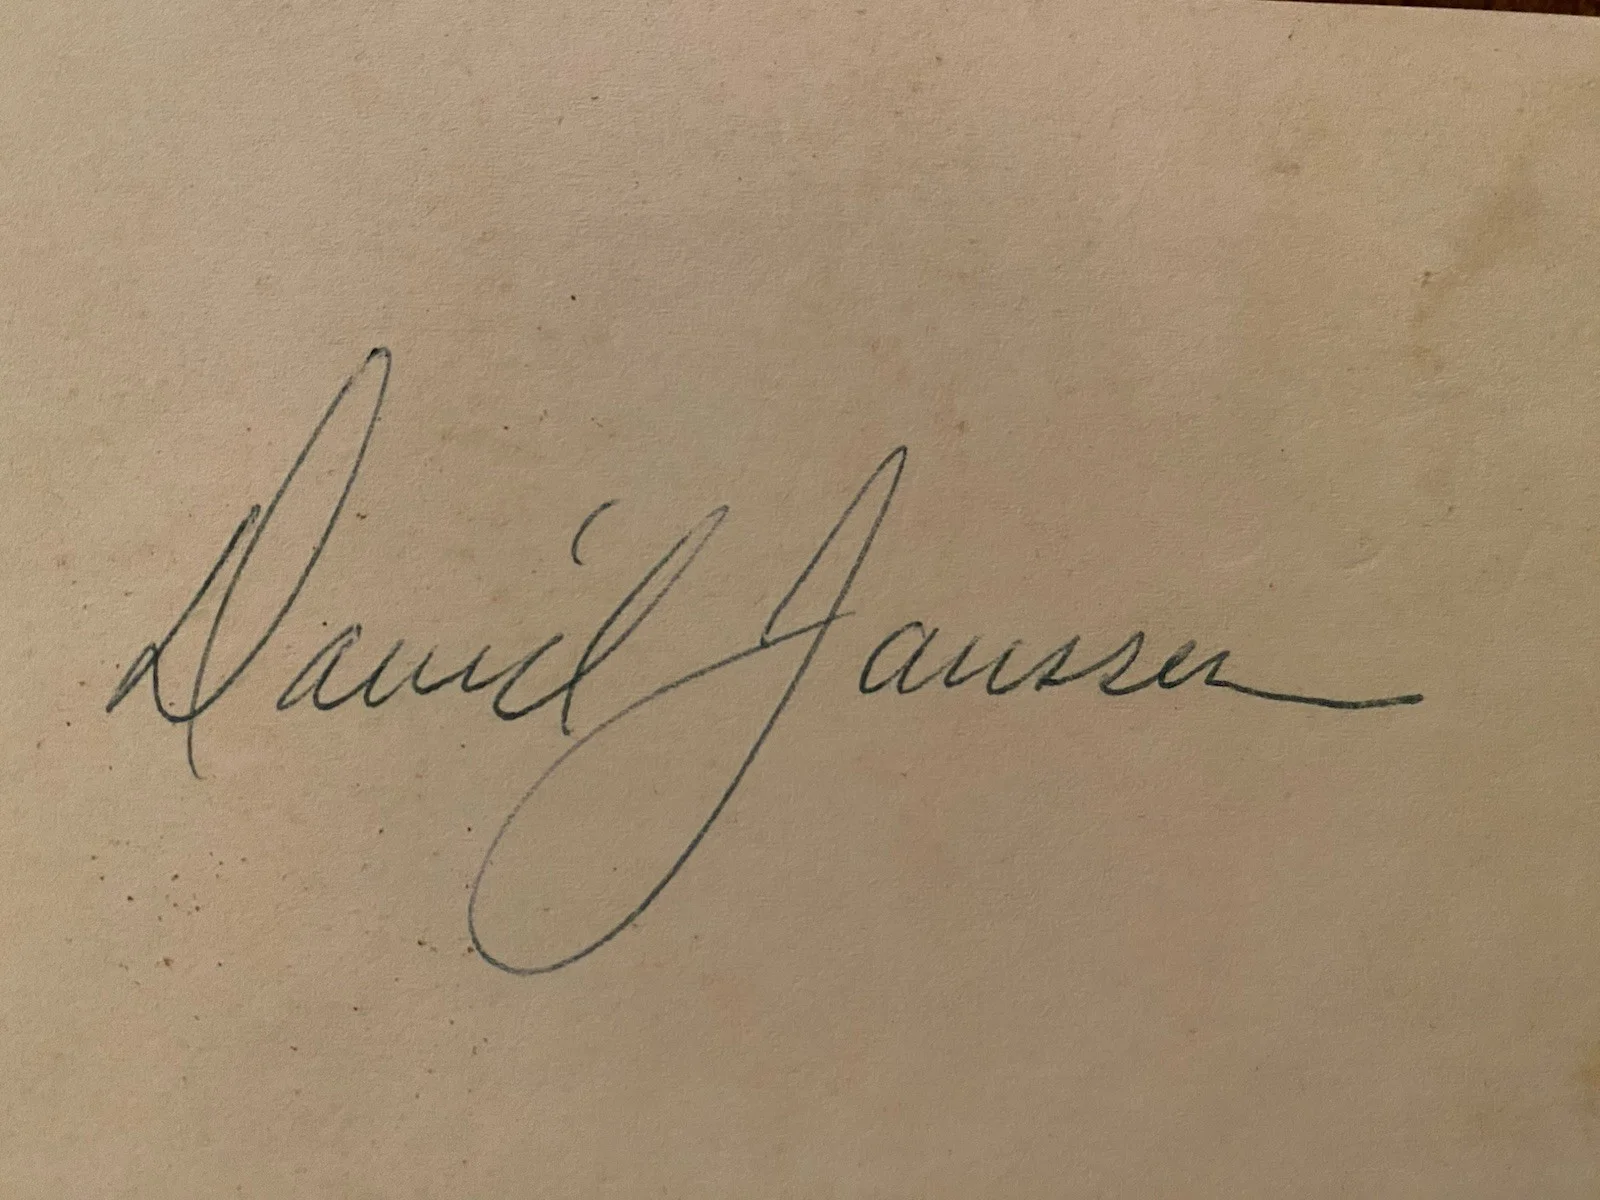 David Janssen